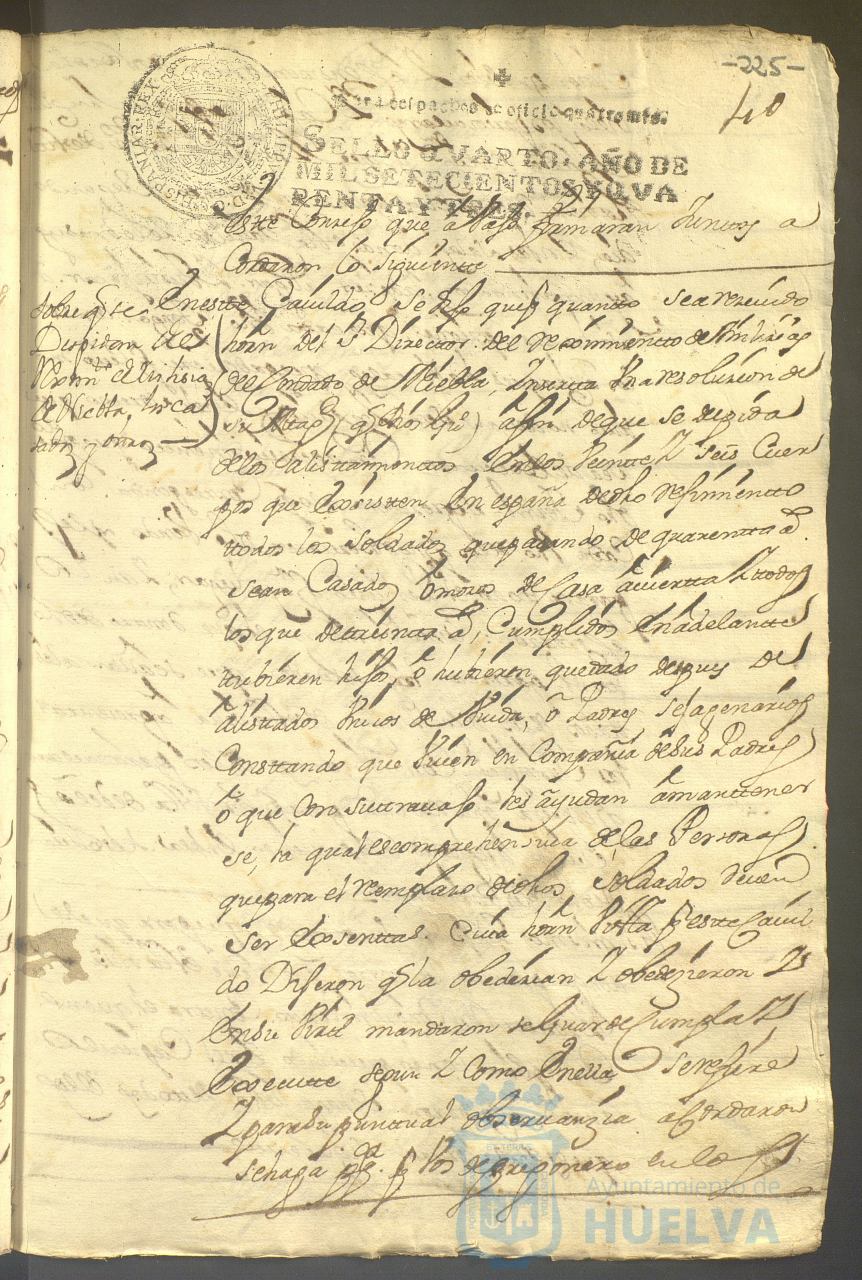 -225-
40
Para despachos de oficio quatro mrs.
SELLO QVARTO, AÑO DE
MIL SETECIENTOS Y QVA
RENTA Y TRES.
HISPANIAR. REX
este Conzejo que abajo firmaran Juntos a
Cordaron lo siguiente
sobre q̃ se
Despidan del
de Niebla, los ca
sados y otros
En este Cavildo se dijo que pr quanto se a rezevido
horñ del Sr Director del reximiento de Milizias
del Condado de Niebla, Inserta Una resoluzion de
su Magd (q Dios gue) a fin de que se despida
de los alistamientos en los Veinte Y seis Cuer
pos que Existen En españa de dho rejimiento
ttodos los soldados que pasando de quarentta as
sean Casados o mozos de Casa avierta Y todos
los que de treintta as, Cumplidos En adelantte
ttubieren hijos, o hubieren quedado despues de
alistados Unicos de Viuda, o Padres sejagenarios
Consttando que Viven en Compañia de sus Padres
o que con su travajo les ayudan a mantener
se, la qual es comprehensiva de las Personas
que para el remplazo de dhos soldados deven
ser Exsenttas. Cuia horñ Vistta pr este Cavil
do Dijeron q̃ la obedezian Y obedezieron Y
En su Virtd mandaron se Guarde Cumpla Y
Execute segun Y Como En ella se refiere
Y para su punttual observanzia acordaron
se haga
pr Voz de pregonero en los
Ayuntamiento de
HUELVA